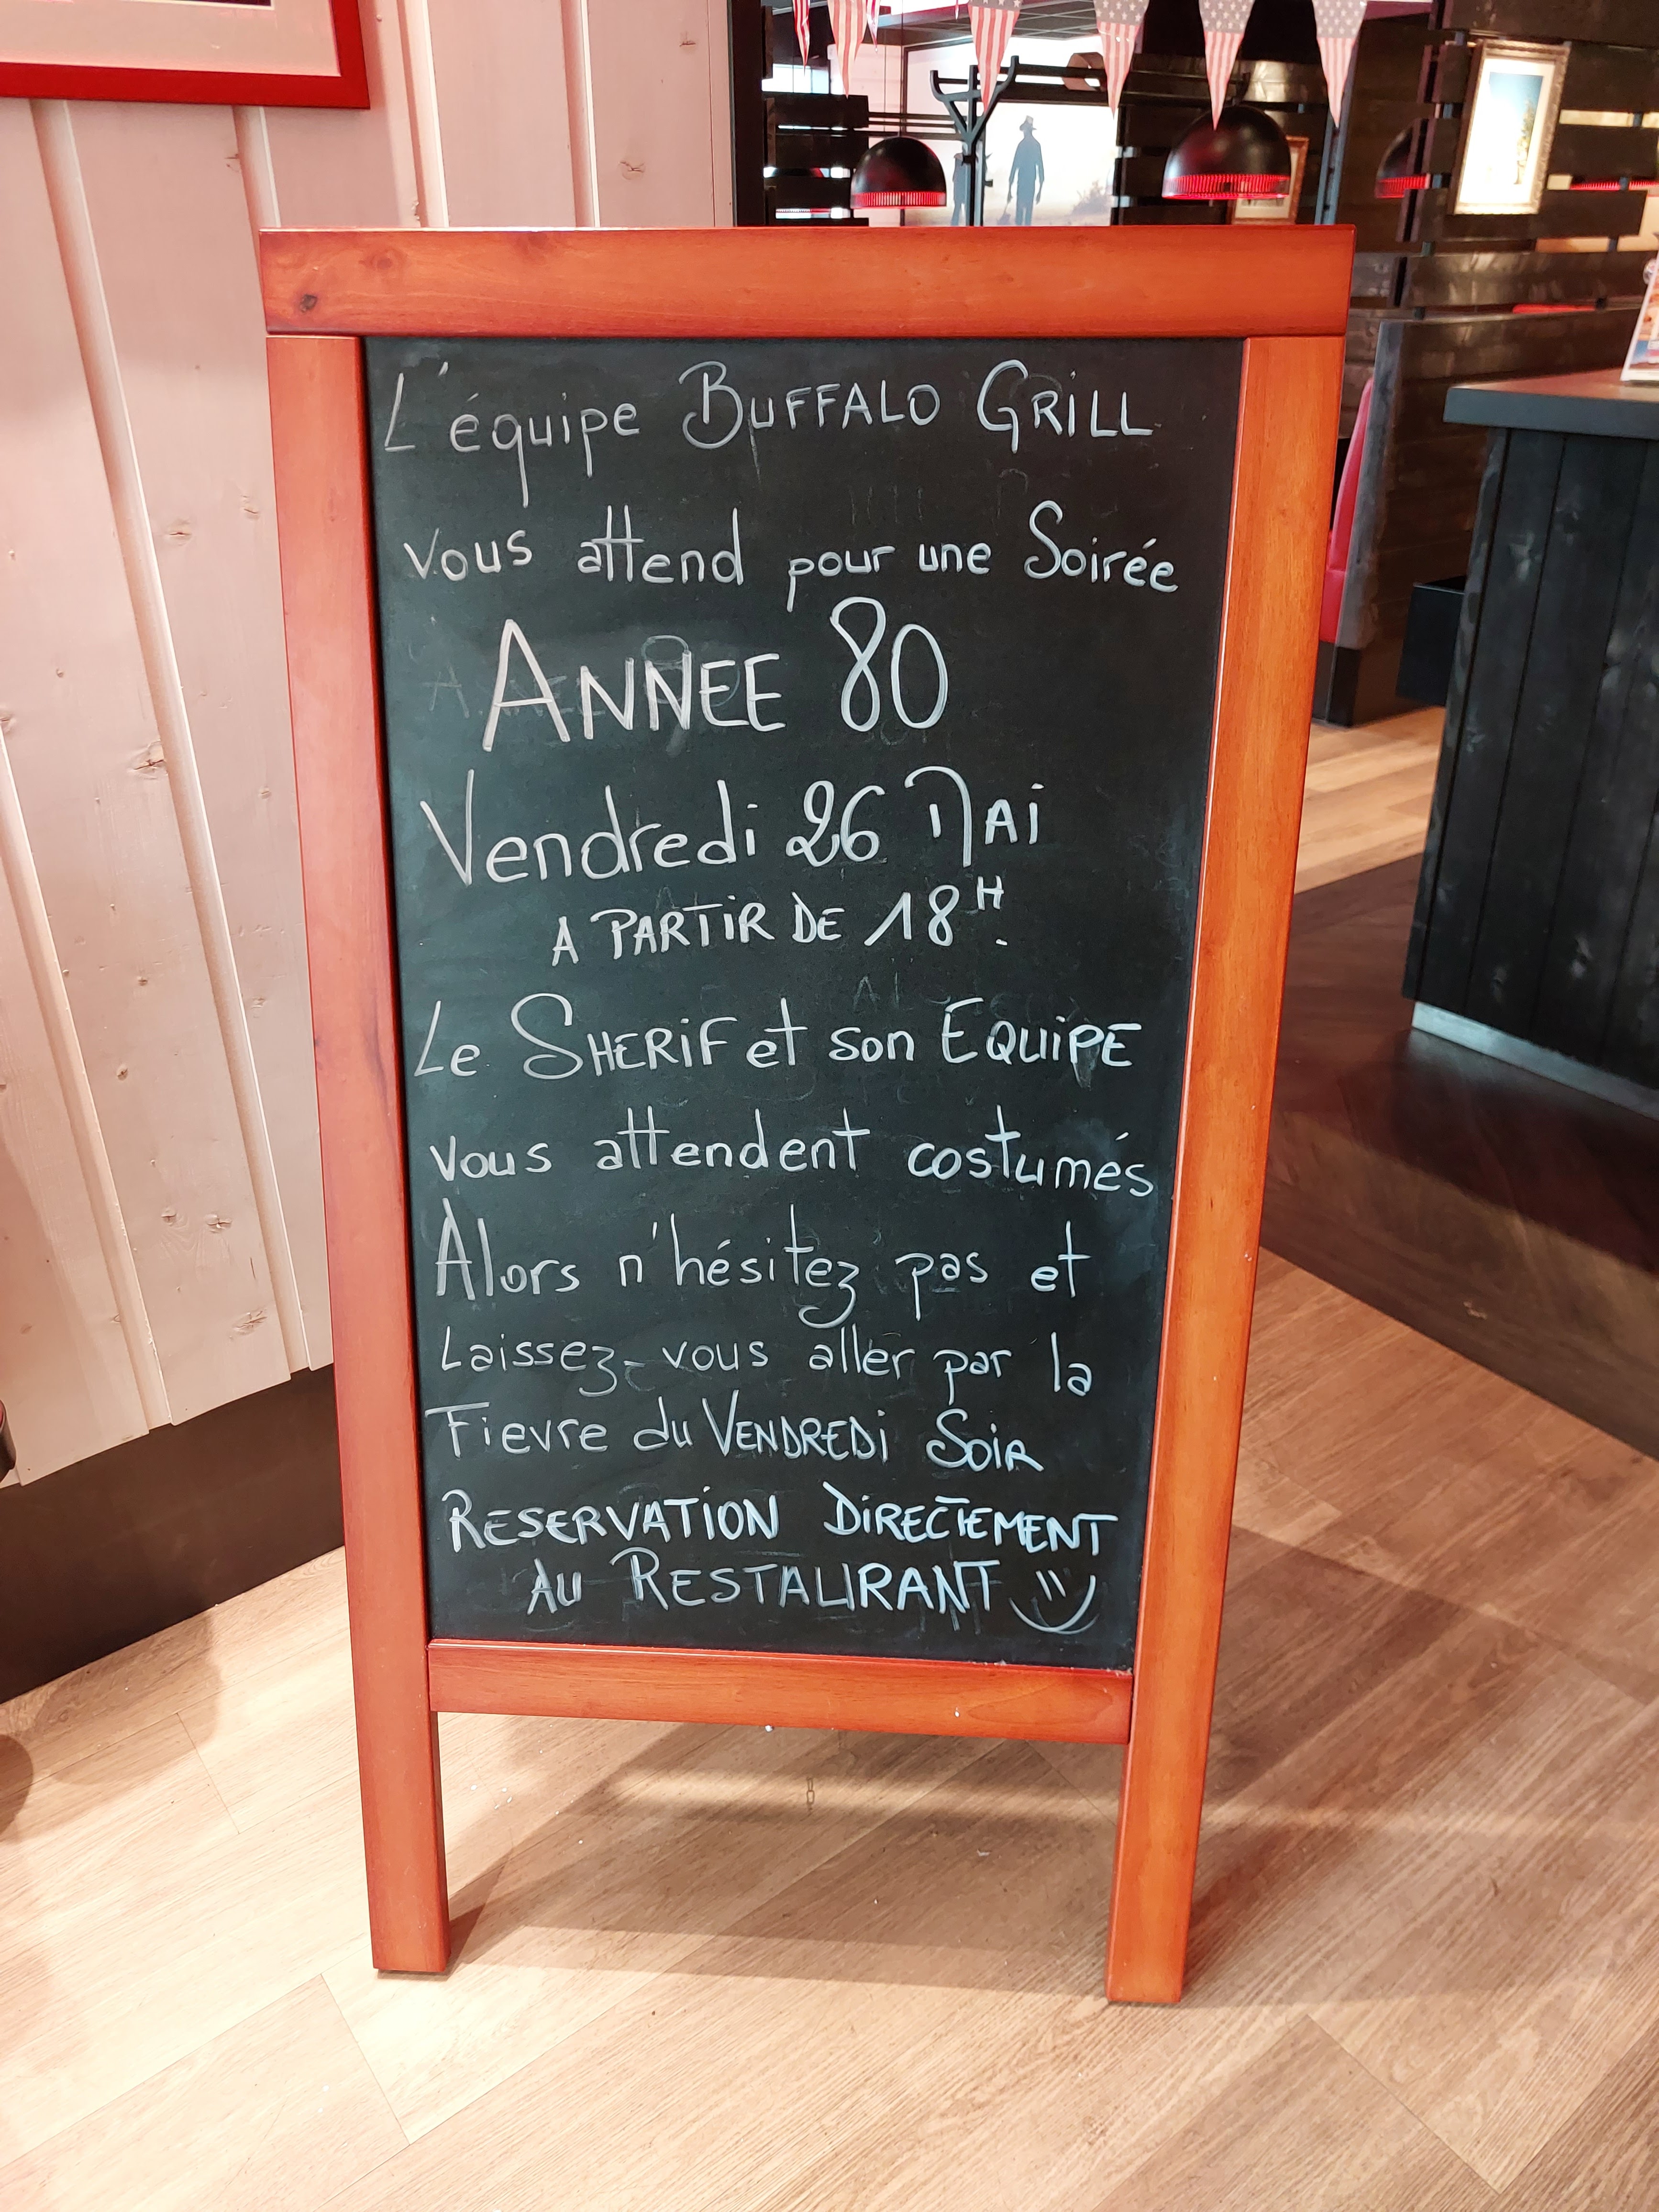 L'équipe BUFFALO GRiLL
vous attend pour une Soirée
ANNEE 80
Vendredi 26 MAi
A PARTiR DE 18H.
Le SHERiF et son EQUiPE
vous attendent costumés
Alors n'hésitez pas et
Laissez-vous aller par la
Fievre du VENDREDi SoiR
RESERVATiON DiRECTEMENT
AU RESTAURANT